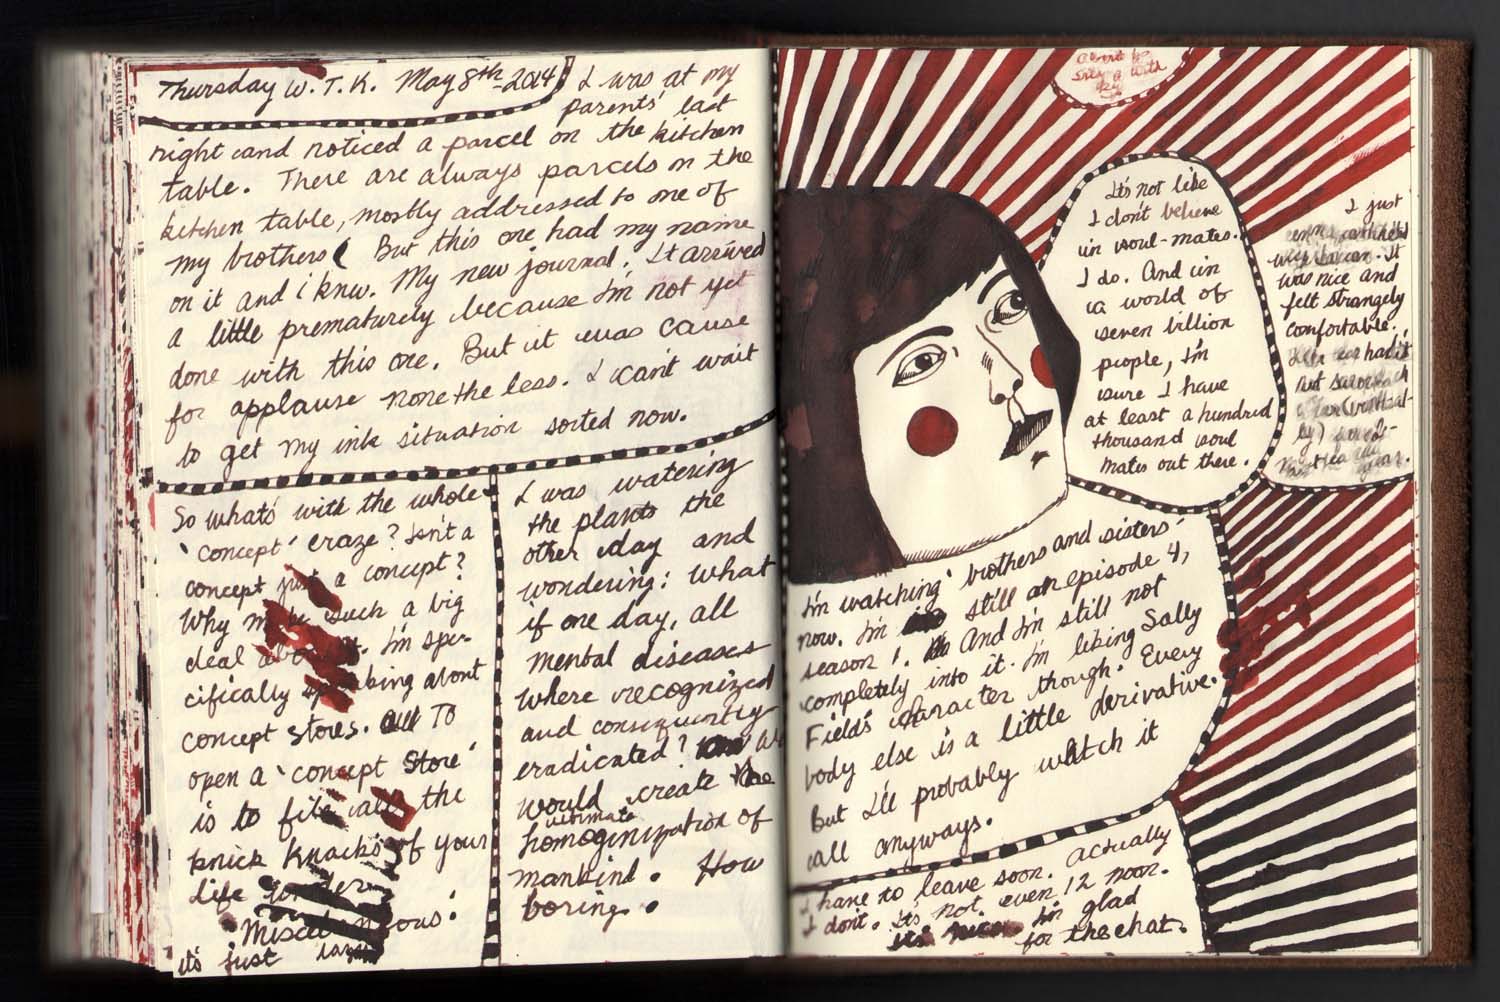 Thursday W.T.K. May 8th-2014
I was at my
parents' last
night and noticed a parcel on the kitchen
table. There are always parcels on the
kitchen table, mostly addressed to one of
my brothers. But this one had my name
on it and i knew. My new journal. It arrived
a little prematurely because I'm not yet
done with this one. But it was cause
for applause none the less. I can't wait
to get my ink situation sorted now.
So what's with the whole
'concept' craze? Isn't a
concept just a concept?
Why make such a big
deal about it. I'm spe-
cifically speaking about
concept stores. To
open a 'concept store'
is to file all the
knick knacks of your
life under
'Miscellaneous'.
it's just
I was watering
the plants the
other day and
wondering: what
if one day, all
mental diseases
where recognized
and consequently
eradicated? We
would create the
ultimate
homoginization of
mankind. How
boring.
It's not like
I don't believe
in soul-mates.
I do. And in
a world of
seven billion
people, I'm
sure I have
at least a hundred
thousand soul
mates out there.
I just
It
was nice and
felt strangely
comfortable.
had it
not
year.
I'm watching 'brothers and sisters'
now. I'm still on episode 4,
season 1. And I'm still not
completely into it. I'm liking Sally
Field's character though. Every
body else is a little derivative.
But I'll probably watch it
all anyways.
I have to leave soon. Actually
I don't. It's not even 12 noon.
it's nice I'm glad
for the chat.